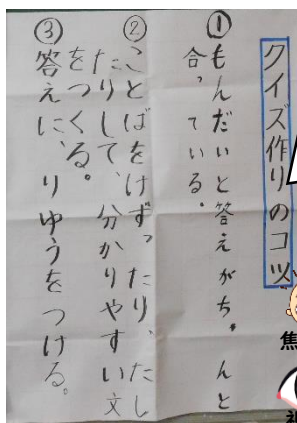 クイズ作りのコツ
①もんだいと答えがち,んと
合っている。
②ことばをけずったり、たし
たりして、分かりやすい文
をつくる。
③答えに、りゆうをつける。
焦